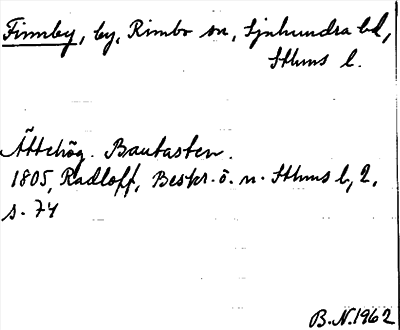 Finnby, by, Rimbo sn, Sjuhundra hd,
Sthms l.
Ättehög. Bautasten.
1805, Radloff, Beskr. ö. n. Sthms l, 2,
s. 74
B.N.1962